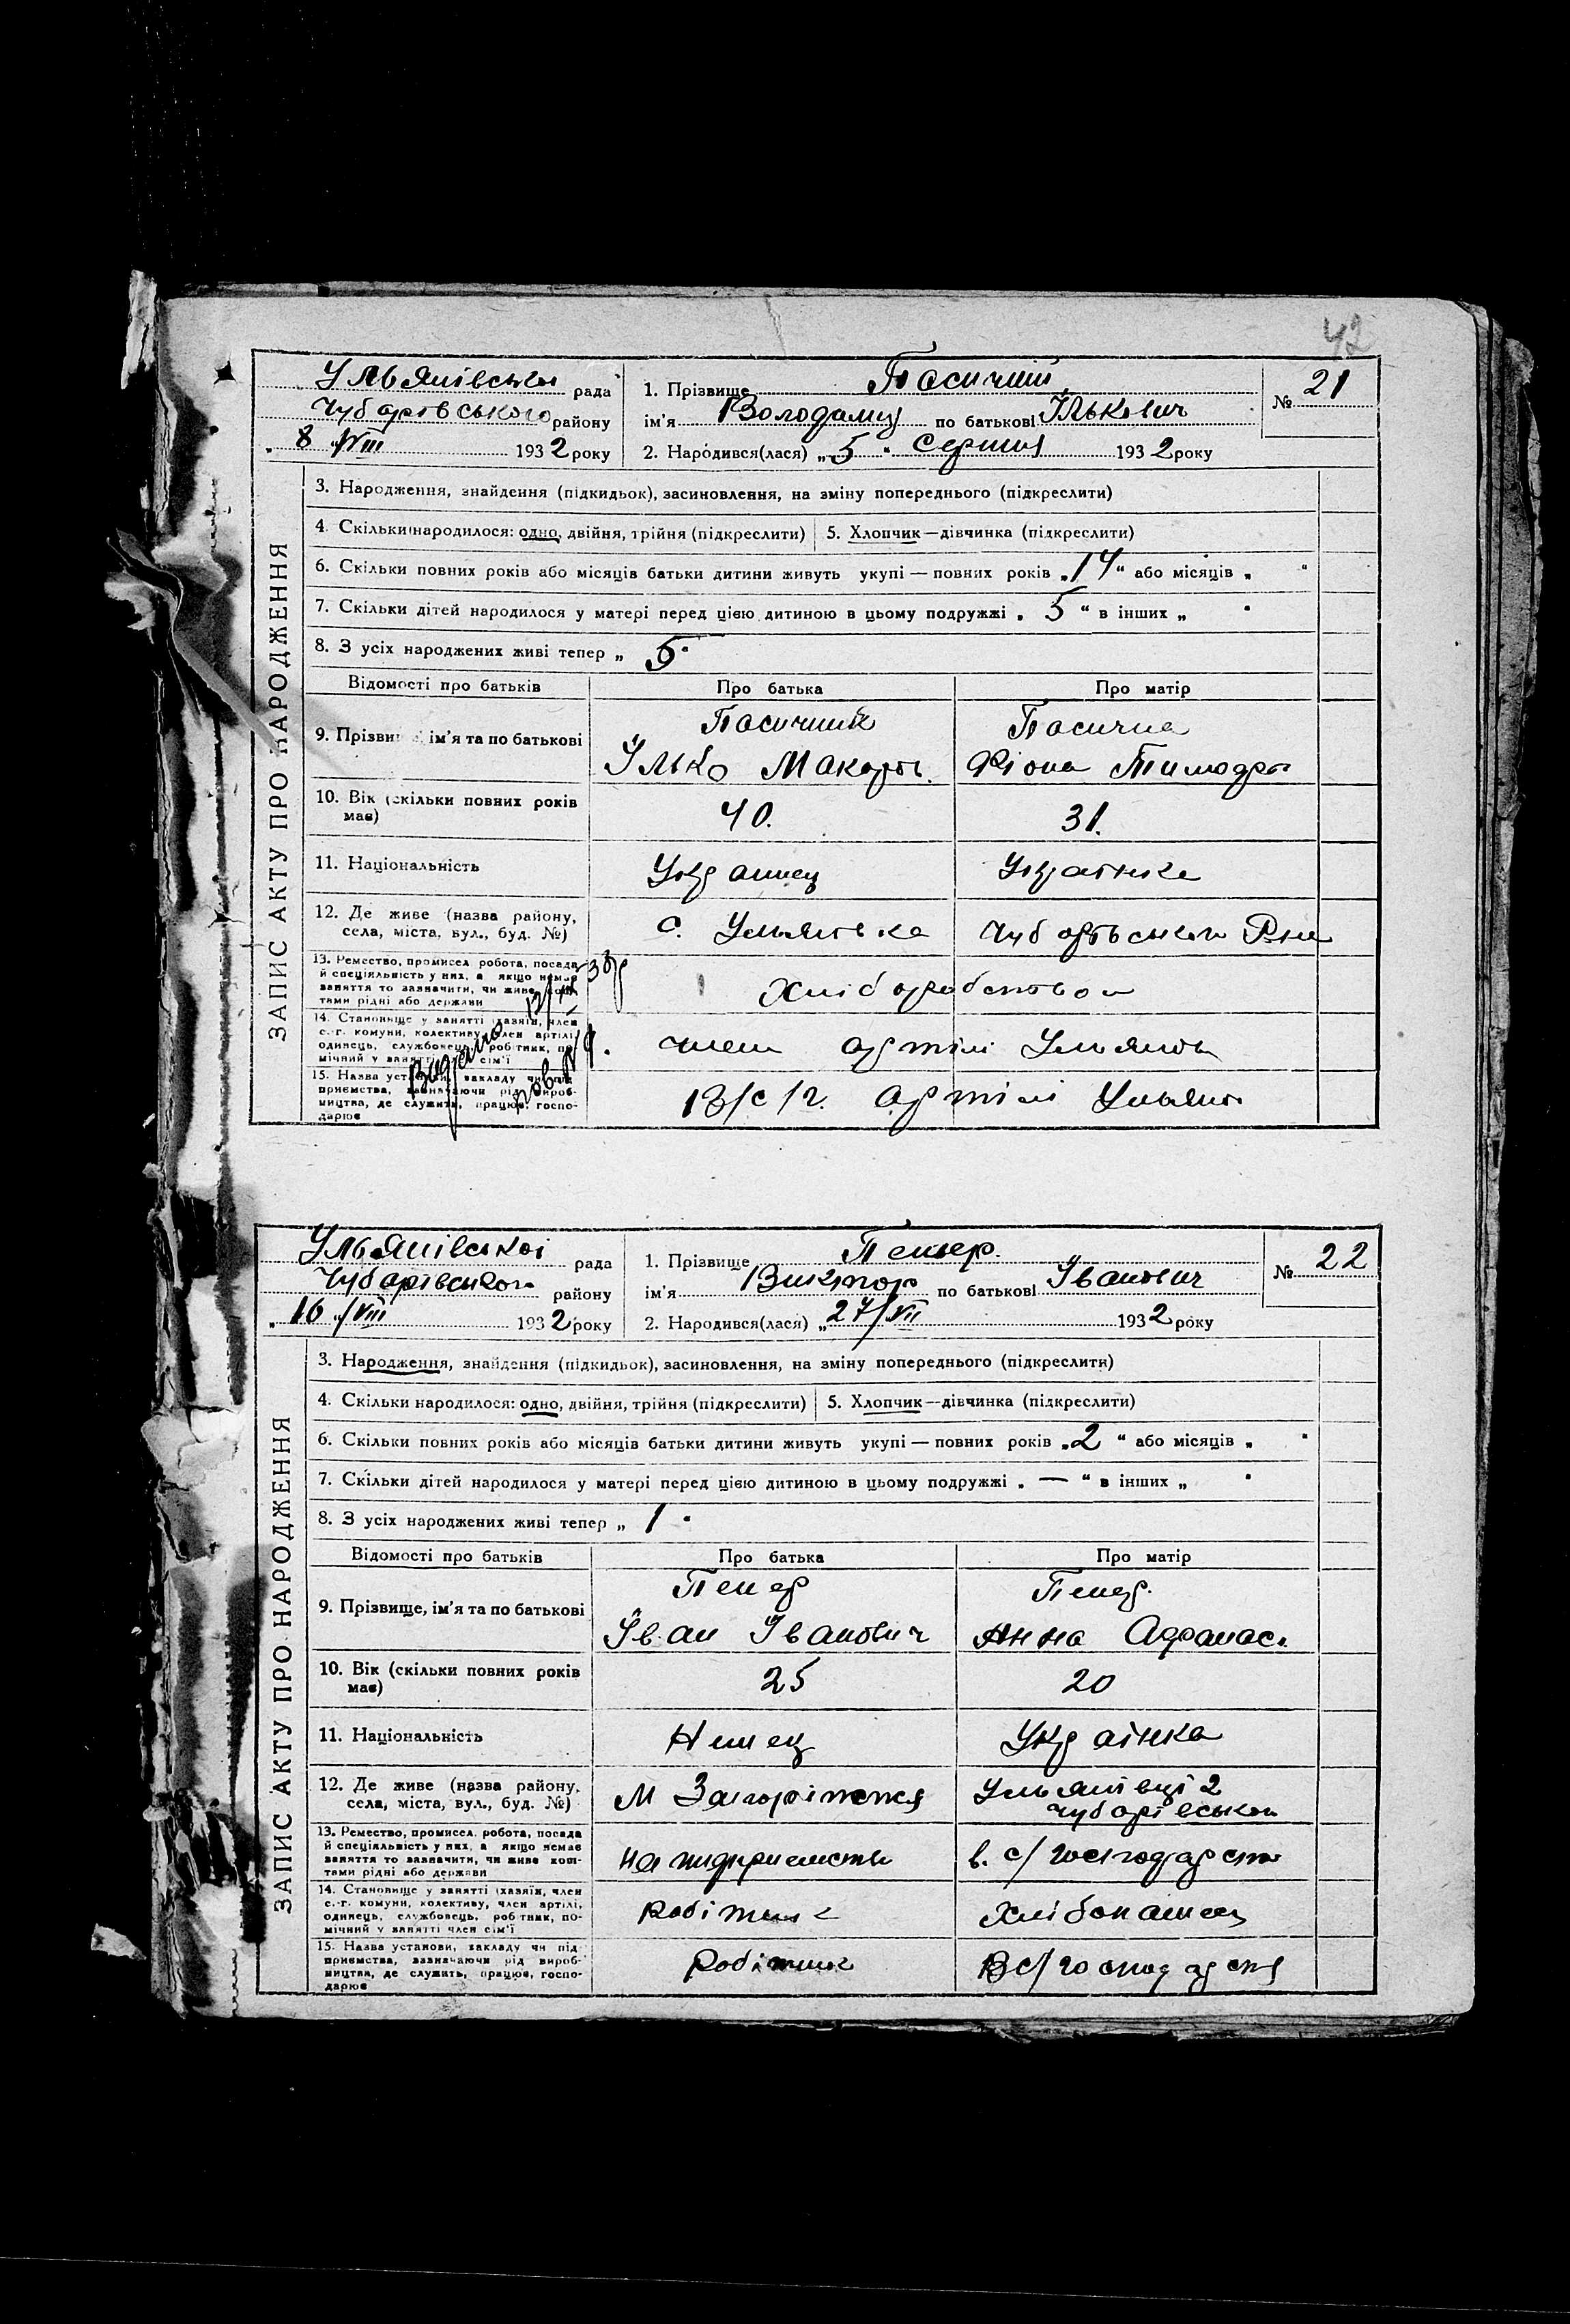 42
Ульянівська рада
Чубарівського району
„ 8 „ VIII 1932 року
1. Прізвище Пасичний
ім'я Володимир по батькові Ількович
2. Народився(лася) „ 5 " Серпня 1932 року
№ 21
ЗАПИС АКТУ ПРО НАРОДЖЕННЯ
3. Народження, знайдення (підкидьок), засиновлення, на зміну попереднього (підкреслити)
4. Скільки народилося: одно, двійня, трійня (підкреслити) 5. Хлопчик—дівчинка (підкреслити)
6. Скільки повних років або місяців батьки дитини живуть укупі — повних років „ 14 " або місяців „ "
7. Скільки дітей народилося у матері перед цією дитиною в цьому подружжі „ 5 " в інших „ "
8. З усіх народжених живі тепер „ 5 "
Відомості про батьків Про батька Про матір
9. Прізвище, ім'я та по батькові Пасичний Пасична
Ілько Макаров. Тимофр
10. Вік (скільки повних років має) 40. 31.
11. Національність Украинец Украінка
12. Де живе (назва району, села, міста, вул., буд. №) с. Ульяновка Чубарівського Рна
13. Ремество, промисел, робота, посада й спеціяльність у них, а якщо немає заняття то зазначити, чи живе коштами рідні або держави Хліборобством
14. Становище у занятті (хазяїн, член с.-г. комуни, колективу, член артілі, одинець, службовець, робітник, помічний у занятті член сім'ї член артілі Ульянов
15. Назва установи, закладу чи підприємства, зазначаючи рід виробництва, де служить, працює, господарює В/с/г. Артілі Ульянов
Ульянівської рада
Чубарівського району
„ 16 „/VIII 1932 року
1. Прізвище Петер.
ім'я Виктор по батькові Іванович
2. Народився(лася) „ 27/VII 1932 року
№ 22
ЗАПИС АКТУ ПРО НАРОДЖЕННЯ
3. Народження, знайдення (підкидьок), засиновлення, на зміну попереднього (підкреслити)
4. Скільки народилося: одно, двійня, трійня (підкреслити) 5. Хлопчик—дівчинка (підкреслити)
6. Скільки повних років або місяців батьки дитини живуть укупі — повних років „ 2 " або місяців „ "
7. Скільки дітей народилося у матері перед цією дитиною в цьому подружжі „ — " в інших „ "
8. З усіх народжених живі тепер „ 1 "
Відомості про батьків Про батька Про матір
9. Прізвище, ім'я та по батькові Петер Петер.
Іван Іванович Анна Афанас.
10. Вік (скільки повних років має) 25 20
11. Національність Немец Украінка
12. Де живе (назва району, села, міста, вул., буд. №) М Запоріжжя Ульянівці 2
Чубарівської
13. Ремество, промисел, робота, посада й спеціяльність у них, а якщо немає заняття то зазначити, чи живе коштами рідні або держави на пидприемстві в. с/господарство
14. Становище у занятті (хазяїн, член с.-г. комуни, колективу, член артілі, одинець, службовець, робітник, помічний у занятті член сім'ї Робітник Хлібопашец
15. Назва установи, закладу чи підприємства, зазначаючи рід виробництва, де служить, працює, господарює Робітник В с/господарстві